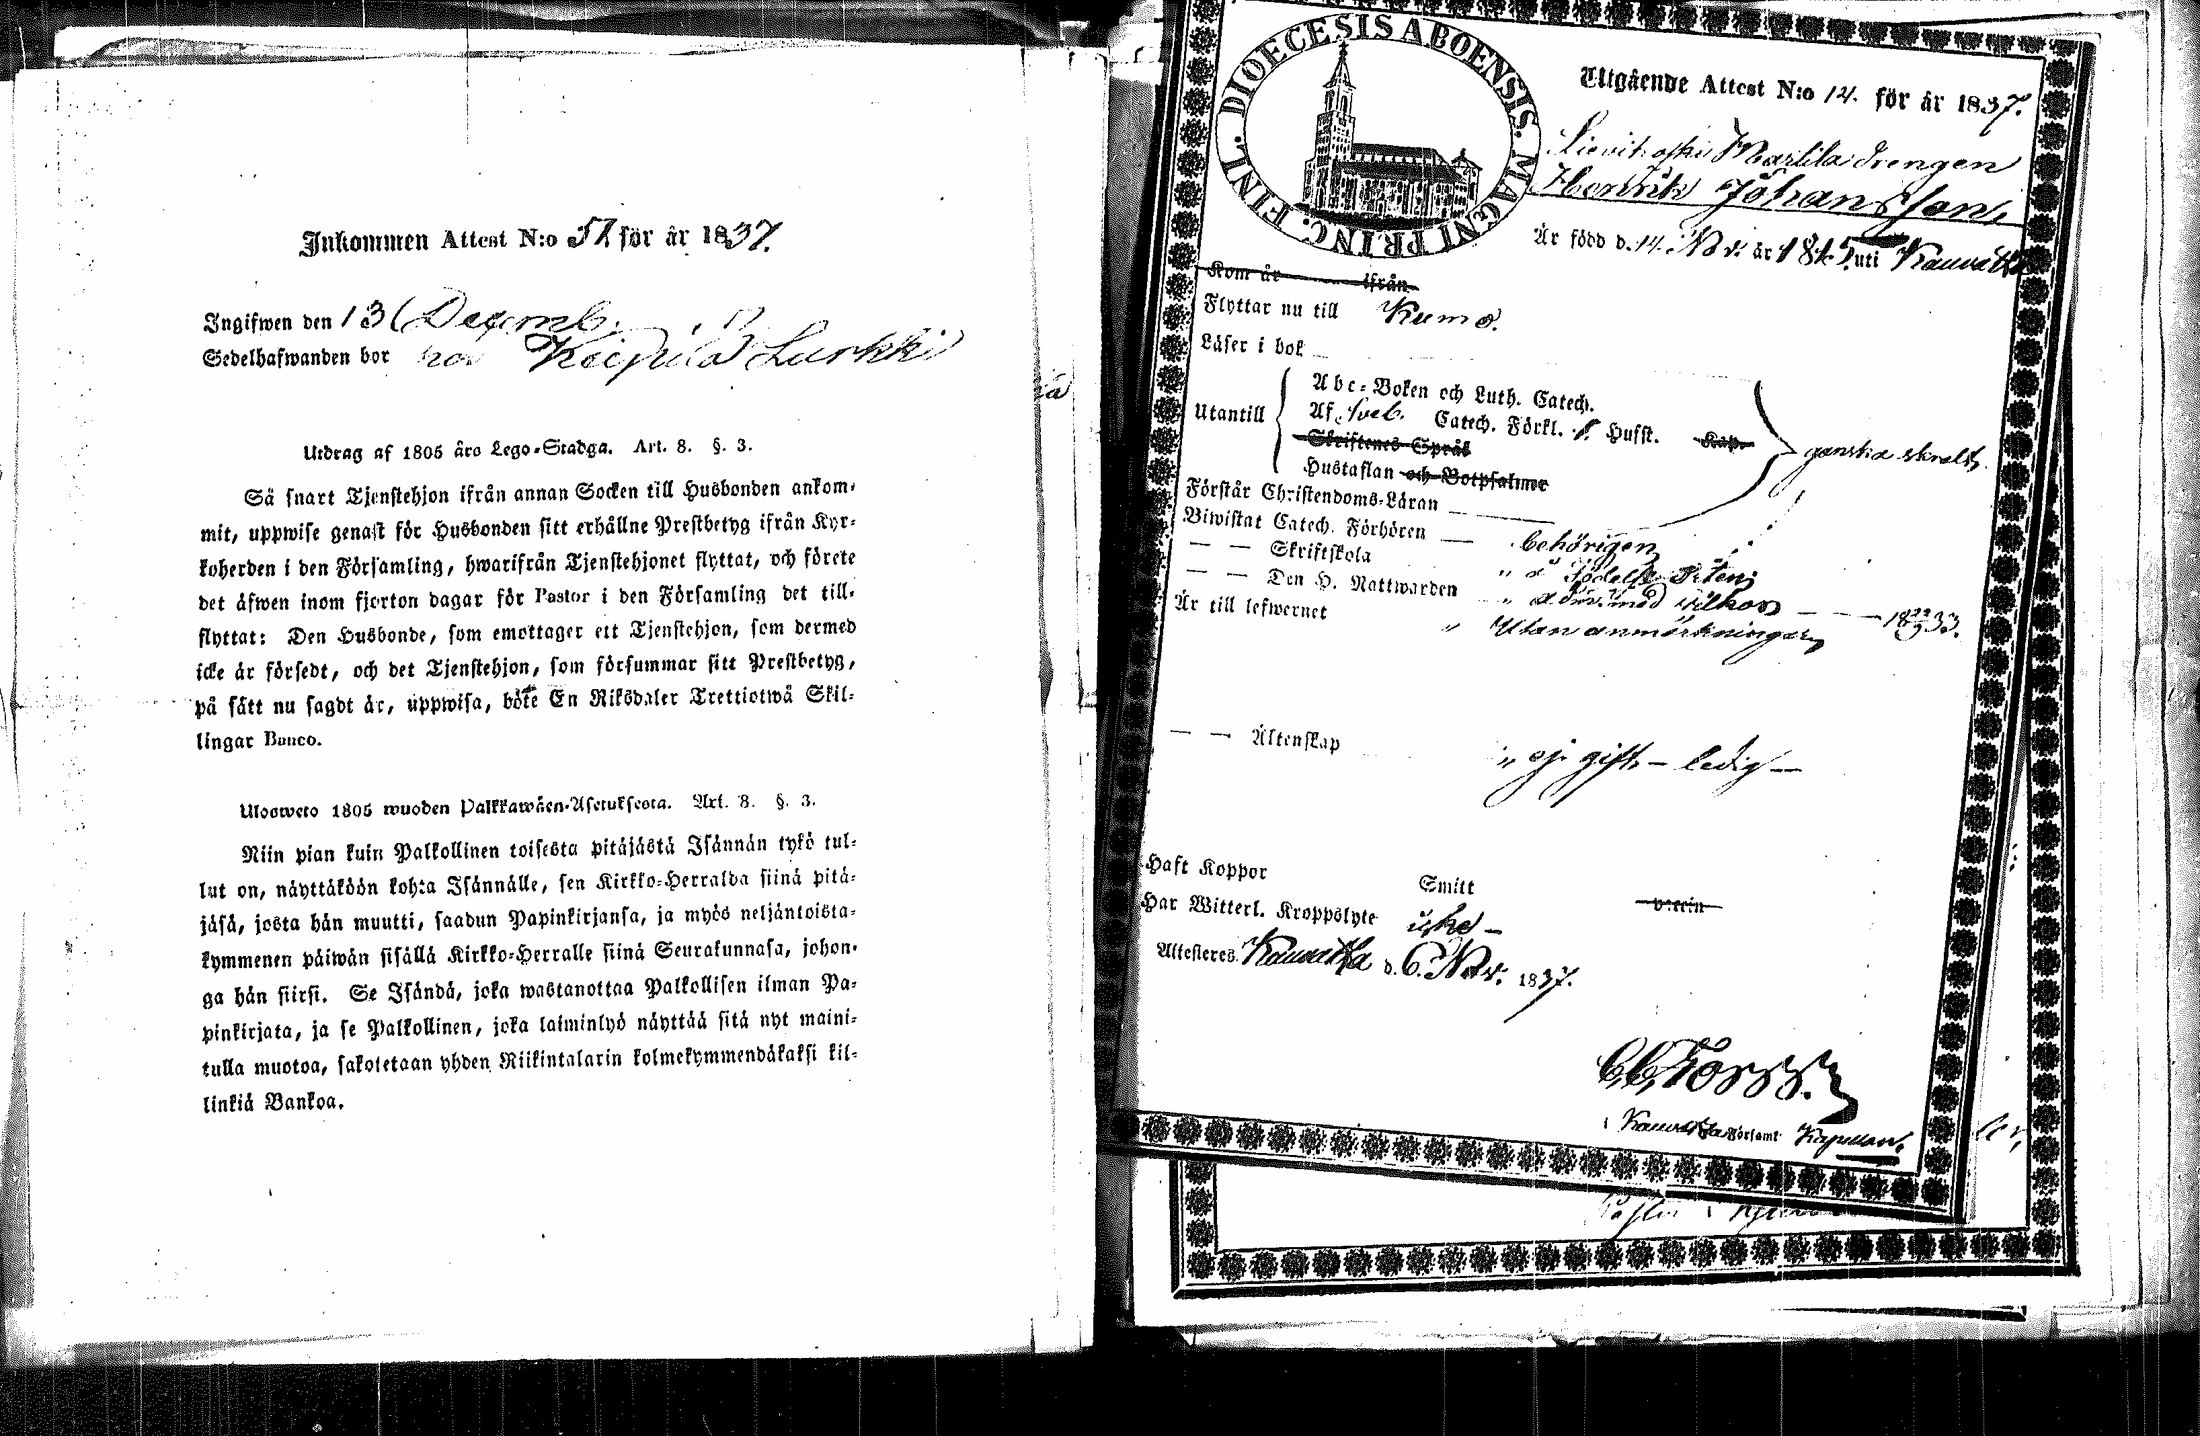 Inkommen Attest N:o 57 för år 1837.
Ingifwen den 13 Decemb.
Sedelhafwanden bor hos Keipilä Lurkki
Utdrag af 1805 års Lego-Stadga. Art. 8. §. 3.
Så snart Tjenstehjon ifrån annan Socken till Husbonden ankom-
mit, uppwise genast för Husbonden sitt erhållne Prestbetyg ifrån Kyr-
koherden i den Församling, hwarifrån Tjenstehjonet flyttat, och förete
det äfwen inom fjorton dagar för Pastor i den Församling det till-
flyttat: Den Husbonde, som emottager ett Tjenstehjon, som dermed
icke är försedt, och det Tjenstehjon, som försummar sitt Prestbetyg,
på sätt nu sagdt är, uppwisa, böte En Riksdaler Trettiotwå Skil-
lingar Banco.
Ulosweto 1805 wuoden Palkkawäen-Asetuksesta. Art. 8. §. 3.
Niin pian kuin Palkollinen toisesta pitäjästä Isännän tykö tul-
lut on, näyttäköön kohta Isännälle, sen Kirkko-Herralda siinä pitä-
jäsä, josta hän muutti, saadun Papinkirjansa, ja myös neljäntoista-
kymmenen päiwän sisällä Kirkko-Herralle siinä Seurakunnasa, johon-
ga hän siirsi. Se Isändä, joka wastanottaa Palkollisen ilman Pa-
pinkirjata, ja se Palkollinen, joka laiminlyö näyttää sitä nyt maini-
tulla muotoa, sakotetaan yhden Riikintalarin kolmekymmendäkaksi kil-
linkiä Bankoa.
DIOECESIS ABOENSIS. MAGNI PRINC. FINL.
Utgående Attest N:o 14. för år 1837.
Lievikoski Marttila drengen
Henrik Johansson,
Är född d. 14. Nov. år 1815 uti Kauvatsa
Kom år ifrån
Flyttar nu till Kumo.
Läser i bok
Utantill
Abc-Boken och Luth. Catech.
Af Sveb. Catech. Förkl. Hufst. Kap.
Skriftenes Språk
Hustaflan och Botpsalmer
ganska skralt
Förstår Christendoms-Läran
Biwistat Catech. Förhören — behörigen
— — Skriftskola " å födelse Orten
— — Den H. Nattwarden " 18 22/9 33.
Är till lefwernet " Utan anmärkningar
— — Äktenskap " ej gift — ledig —
Haft Koppor Smitt
Har Witterl. Kroppslyte icke — werin
Attesteres Kauvatsa d. 6. Nov. 1837.
Kauvatsa Församl. Kapellan.